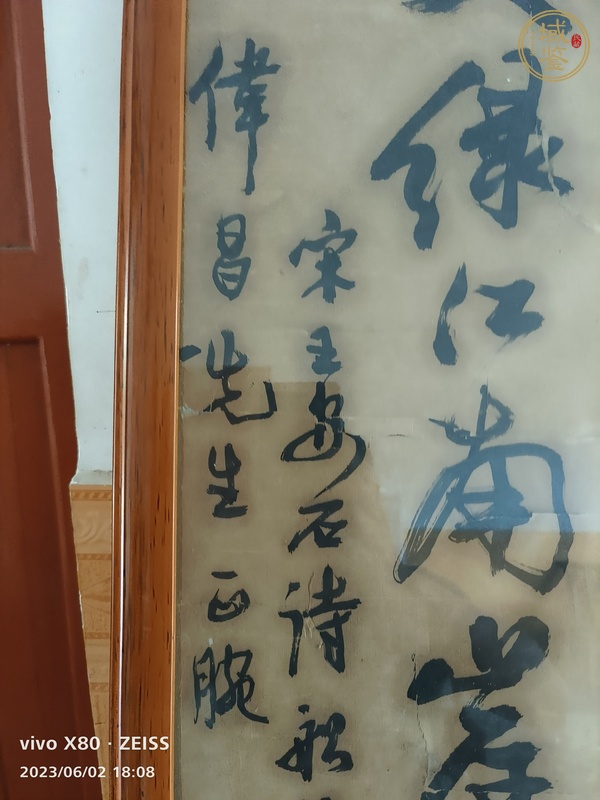 綠江南岸
宋王安石詩
偉昌先生正腕
vivo X80 · ZEISS
2023/06/02 18:08